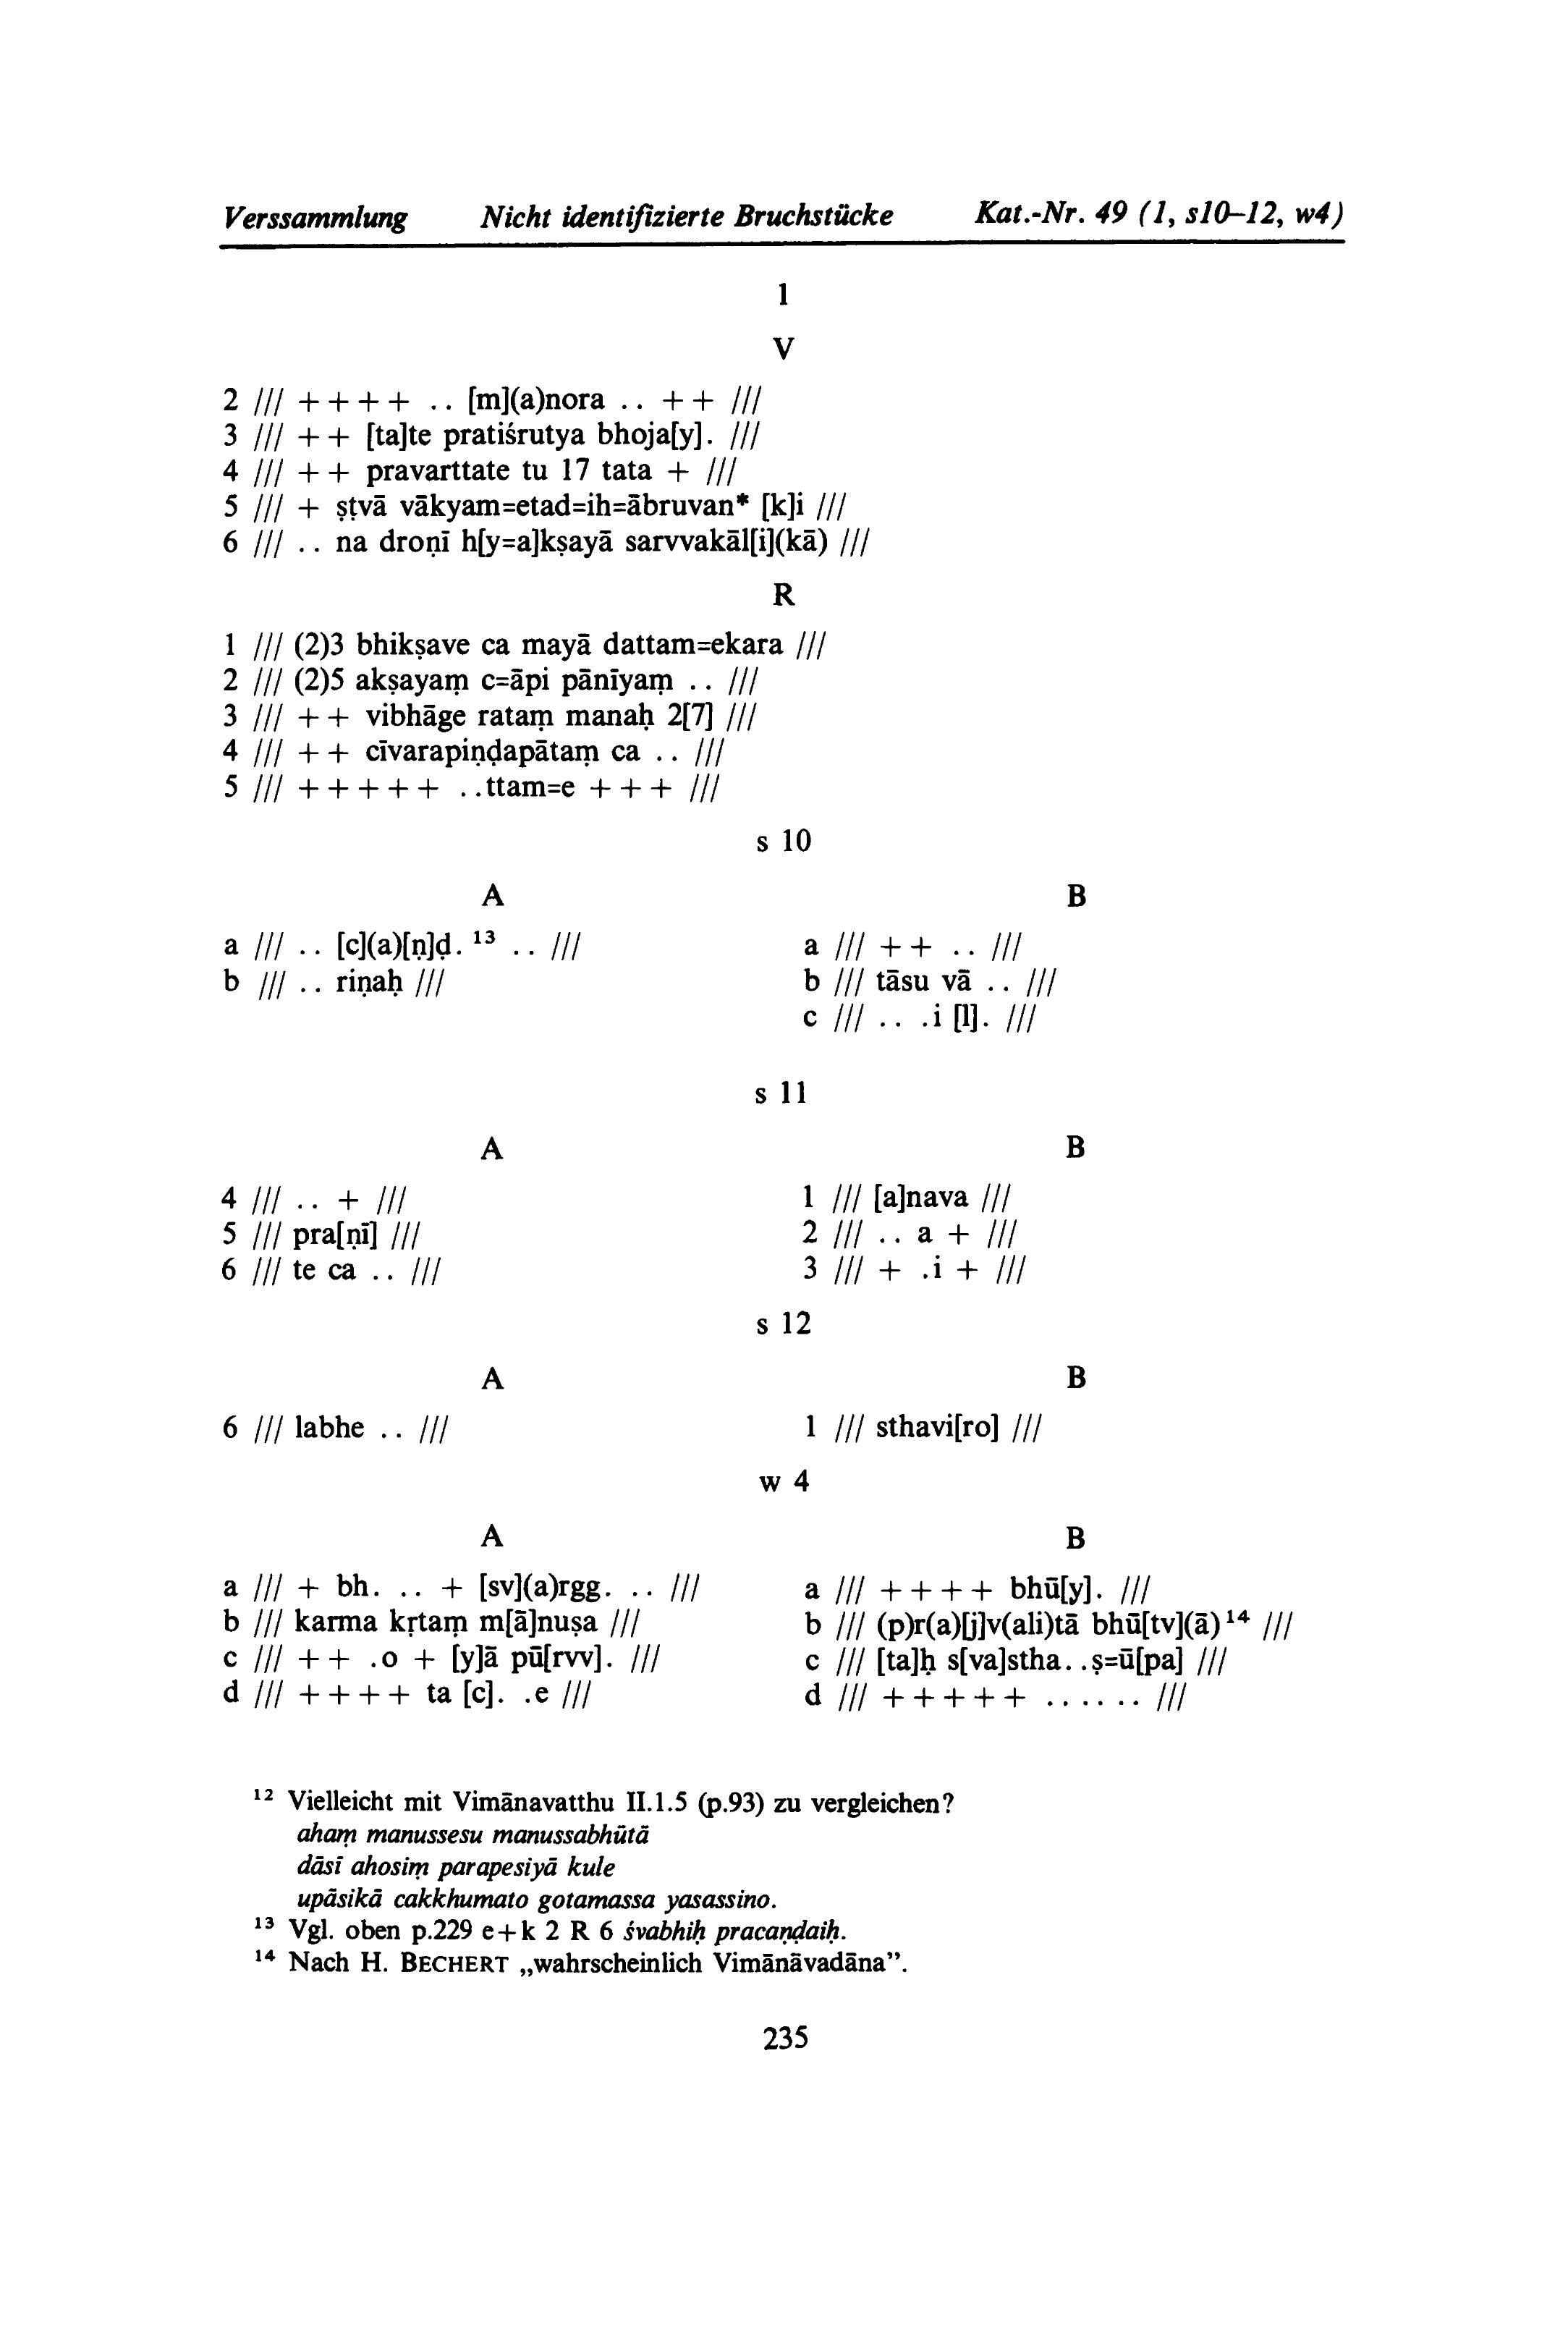 Verssammlung Nicht identifizierte Bruchstücke Kat.-Nr. 49 (1, s10–12, w4)
1
V
2 /// + + + + .. [m](a)nora .. + + ///
3 /// + + [ta]te pratiśrutya bhoja[y]. ///
4 /// + + pravarttate tu 17 tata + ///
5 /// + ṣṭvā vākyam=etad=ih=ābruvan* [k]i ///
6 /// .. na droṇī h[y=a]kṣayā sarvvakāl[i](kā) ///
R
1 /// (2)3 bhikṣave ca mayā dattam=ekara ///
2 /// (2)5 akṣayaṃ c=āpi pānīyaṃ .. ///
3 /// + + vibhāge rataṃ manaḥ 2[7] ///
4 /// + + cīvarapiṇḍapātaṃ ca .. ///
5 /// + + + + + ..ttam=e + + + ///
s 10
A
a /// .. [c](a)[ṇ]ḍ. ¹³ .. ///
b /// .. riṇaḥ ///
B
a /// + + .. ///
b /// tāsu vā .. ///
c /// .. .i [l]. ///
s 11
A
4 /// .. + ///
5 /// pra[ṇī] ///
6 /// te ca .. ///
B
1 /// [a]nava ///
2 /// .. a + ///
3 /// + .i + ///
s 12
A
6 /// labhe .. ///
B
1 /// sthavi[ro] ///
w 4
A
a /// + bh. .. + [sv](a)rgg. .. ///
b /// karma kṛtaṃ m[ā]nuṣa ///
c /// + + .o + [y]ā pū[rvv]. ///
d /// + + + + ta [c]. .e ///
B
a /// + + + + bhū[y]. ///
b /// (p)r(a)[j]v(ali)tā bhū[tv](ā)¹⁴ ///
c /// [ta]ḥ s[va]stha..ṣ=ū[pa] ///
d /// + + + + + ...... ///
¹² Vielleicht mit Vimānavatthu II.1.5 (p.93) zu vergleichen?
ahaṃ manussesu manussabhūtā
dāsī ahosiṃ parapesiyā kule
upāsikā cakkhumato gotamassa yasassino.
¹³ Vgl. oben p.229 e+k 2 R 6 śvabhiḥ pracaṇḍaiḥ.
¹⁴ Nach H. BECHERT „wahrscheinlich Vimānāvadāna”.
235